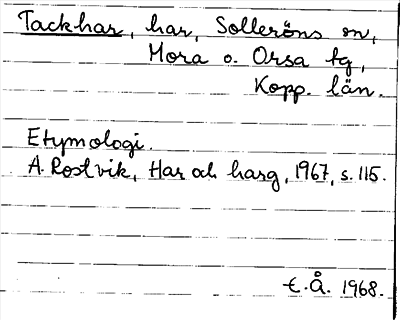 Tackhar, har, Solleröns sn,
Mora o. Orsa tg,
Kopp. län.
Etymologi.
A. Rostvik, Har och harg, 1967, s. 115.
E. Å. 1968.